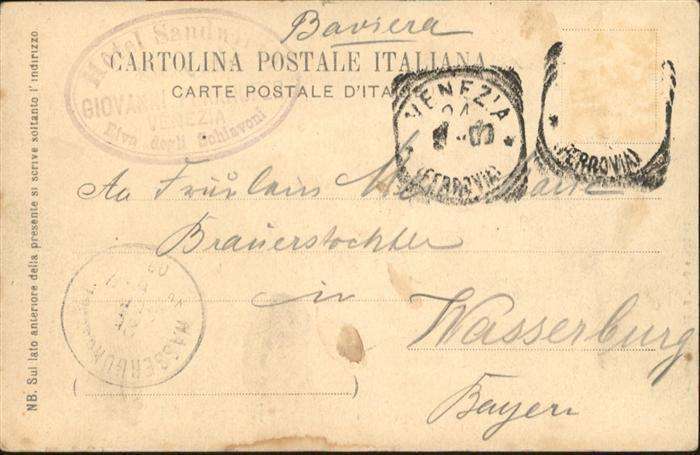 Baviera
Hotel Sandwirth
CARTOLINA POSTALE ITALIANA
CARTE POSTALE D'ITA
GIOVAN
VENEZIA
Riva degli Schiavoni
VENEZIA
(FERROVIA)
(FERROVIA)
An Fräulein Marie
Brauerstochter
in
Wasserburg
Bayern
WASSERBURG
NB. Sul lato anteriore della presente si scrive soltanto l'indirizzo